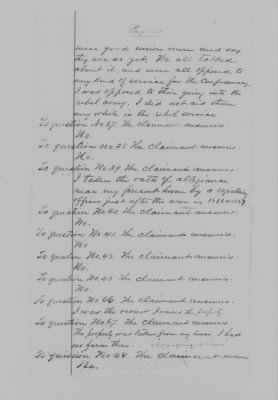 were good union men and say
they are so yet. We all talked
about it, and were all opposed to
any kind of service for the Confederacy
I was opposed to their going into the
rebel army. I did not aid them
any while in the rebel service.
To question No. 37. The claimant answers:
No.
To question No. 38. The claimant answers:
No.
To question No. 39. The claimant answers:
I taken the oath of allegiance
near my present home by a
officer just after the war in
To question No. 40. The claimant answers:
No.
To question No. 41. The claimant answers:
No
To question No. 42. The claimant answers:
No.
To question No. 43. The claimant answers:
No.
To question No. 66. The claimant answers:
I was the owner
To question No. 67. The claimant answers:
The property was taken from my home. I had
no farm then.
To question No. 68. The claimant
No.